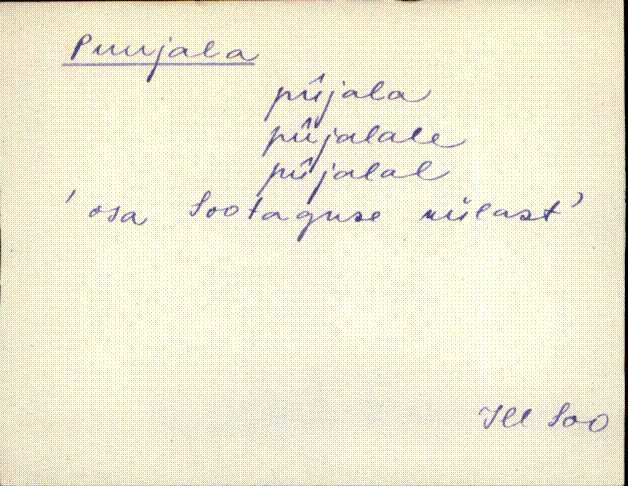 Puujala
pūjala
pūjalale
pūjalal
'osa Sootaguse külast'
Ill Soo